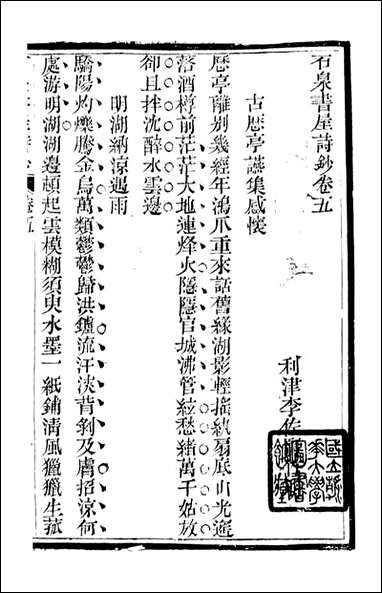 石泉書屋詩鈔卷五
利津李佐
古歷亭讌集感懷
歷亭離別幾經年鴻爪重來話舊緣湖影輕搖紈扇底山光遙
落酒樽前茫茫大地連烽火隱隱官城沸管絃愁緒萬千姑放
卻且拌沈醉水雲邊
明湖納涼遇雨
驕陽灼爍騰金烏萬類鬱鬱歸洪鑪流汗浹背剝及膚招涼何
處游明湖湖邊頓起雲模糊須臾水墨一紙鋪清風獵獵生菰
卷五